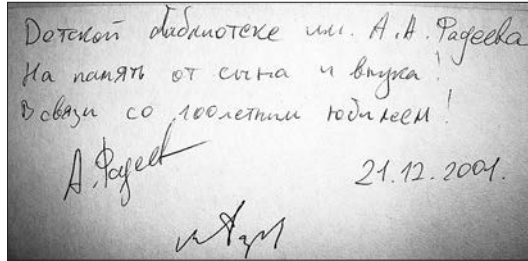 Детской библиотеке им. А.А. Фадеева
На память от сына и внука!
В связи со 100летним юбилеем!
А. Фадеев
21.12.2001.